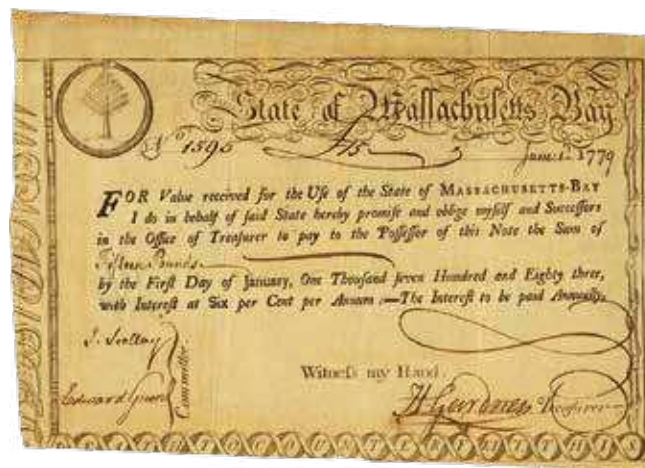 State of Massachusetts Bay
No 1595 £15 June 1st 1779
FOR Value received for the Use of the State of MASSACHUSETTS-BAY
I do in behalf of said State hereby promise and oblige myself and Successors
in the Office of Treasurer to pay to the Possessor of this Note the Sum of
Fifteen Pounds
by the First Day of January, One Thousand seven Hundred and Eighty three,
with Interest at Six per Cent per Annum:—The Interest to be paid Annually.
Committee
Witness my Hand.
Edward
H Gardner Treasurer